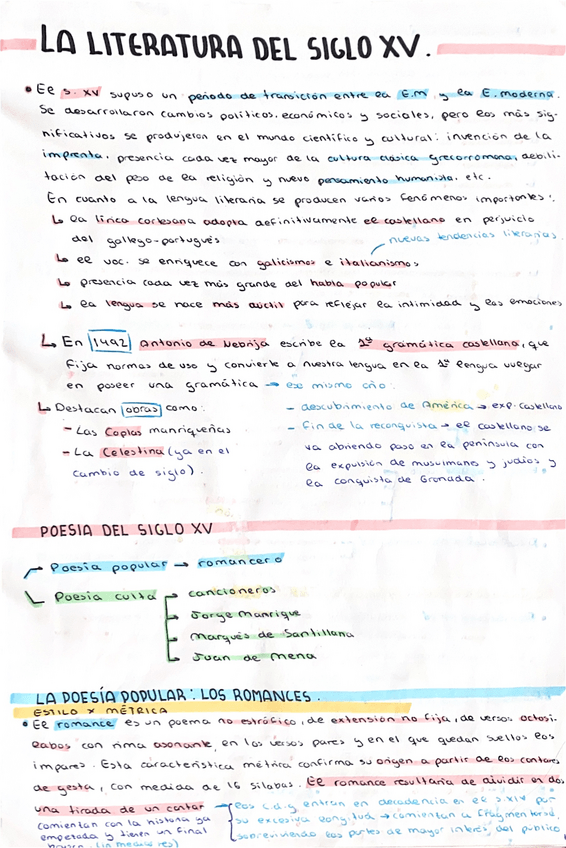 LA LITERATURA DEL SIGLO XV.
• El s. XV supuso un periodo de transición entre la E.m y la E. moderna.
Se desarrollaron cambios políticos, económicos y sociales, pero los más sig-
nificativos se produjeron en el mundo científico y cultural: invención de la
imprenta, presencia cada vez mayor de la cultura clásica grecorromana, debili-
tación del peso de la religión y nuevo pensamiento humanista, etc.
En cuanto a la lengua literaria se producen varios fenómenos importantes:
↳ la lírica cortesana adopta definitivamente el castellano en perjuicio
del gallego-portugués
nuevas tendencias literarias.
↳ el voc. se enriquece con galicismos e italianismos
↳ presencia cada vez más grande del habla popular
↳ la lengua se hace más dúctil para reflejar la intimidad y las emociones
↳ En 1492 Antonio de Nebrija escribe la 1ª gramática castellana, que
fija normas de uso y convierte a nuestra lengua en la 1ª lengua vulgar
en poseer una gramática → ese mismo año:
↳ Destacan obras como:
- Las Coplas manriqueñas
- La Celestina (ya en el
cambio de siglo).
- descubrimiento de América → exp. castellano
- fin de la reconquista → el castellano se
va abriendo paso en la península con
la expulsión de musulmanes y judíos y
la conquista de Granada.
POESIA DEL SIGLO XV
Poesía popular → romancero
Poesía culta
cancioneros
Jorge Manrique
Marqués de Santillana
Juan de Mena
LA POESÍA POPULAR: LOS ROMANCES.
ESTILO Y MÉTRICA
• El romance es un poema no estrófico, de extensión no fija, de versos octosí-
labos con rima asonante, en los versos pares y en el que quedan sueltos los
impares. Esta característica métrica confirma su origen a partir de los cantares
de gesta, con medida de 16 sílabas. El romance resultaría de dividir en dos
una tirada de un cantar
comientan con la historia ya
empezada y tienen un final
(in medias res)
los c.d.g entran en decadencia en el s.XIV por
su excesiva longitud → comientan a fragmentarse,
sobreviviendo las partes de mayor interés del público